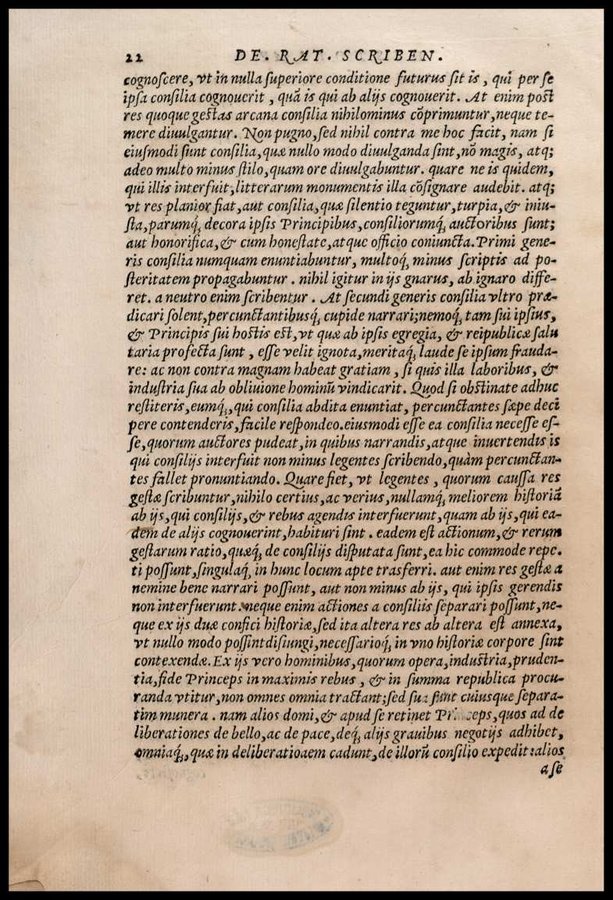 22 DE. RAT. SCRIBEN.
cognoscere, vt in nulla superiore conditione futurus sit is, qui per se
ipsa consilia cognouerit, quã is qui ab alijs cognouerit. At enim post
res quoque gestas arcana consilia nihilominus cõprimuntur, neque te-
mere diuulgantur. Non pugno, sed nihil contra me hoc facit, nam si
eiusmodi sunt consilia, quæ nullo modo diuulganda sint, nõ magis, atq;
adeo multo minus stilo, quam ore diuulgabuntur. quare ne is quidem,
qui illis interfuit, litterarum monumentis illa cõsignare audebit. atq;
vt res planior fiat, aut consilia, quæ silentio teguntur, turpia, & iniu-
sta, parumq́; decora ipsis Principibus, consiliorumq́; auctoribus sunt;
aut honorifica, & cum honestate, atque officio coniuncta. Primi gene-
ris consilia numquam enuntiabuntur, multoq́; minus scriptis ad po-
steritatem propagabuntur. nihil igitur in ijs gnarus, ab ignaro diffe-
ret. a neutro enim scribentur. At secundi generis consilia vltro præ-
dicari solent, percunctantibusq́; cupide narrari; nemoq́; tam sui ipsius,
& Principis sui hostis est, vt quæ ab ipsis egregia, & reipublicæ salu
taria profecta sunt, esse velit ignota, meritaq́; laude se ipsum frauda-
re: ac non contra magnam habeat gratiam, si quis illa laboribus, &
industria sua ab obliuione hominũ vindicarit. Quod si obstinate adhuc
restiteris, eumq́;, qui consilia abdita enuntiat, percunctantes sæpe deci
pere contenderis, facile respondeo. eiusmodi esse ea consilia necesse es-
se, quorum auctores pudeat, in quibus narrandis, atque inuertendis is
qui consilijs interfuit non minus legentes scribendo, quàm percunctan-
tes fallet pronuntiando. Quare fiet, vt legentes, quorum caussa res
gestæ scribuntur, nihilo certius, ac verius, nullamq́; meliorem historiã
ab ijs, qui consilijs, & rebus agendis interfuerunt, quam ab ijs, qui ea-
dem de alijs cognouerint, habituri sint. eadem est actionum, & rerum
gestarum ratio, quæq́; de consilijs disputata sunt, ea hic commode repe-
ti possunt, singulaq́; in hunc locum apte trasferri. aut enim res gestæ a
nemine bene narrari possunt, aut non minus ab ijs, qui ipsis gerendis
non interfuerunt. neque enim actiones a consiliis separari possunt, ne-
que ex ijs duæ confici historiæ, sed ita altera res ab altera est annexa,
vt nullo modo possint disiungi, necessarioq́; in vno historiæ corpore sint
contexendæ. Ex ijs vero hominibus, quorum opera, industria, pruden-
tia, fide Princeps in maximis rebus, & in summa republica procu-
randa vtitur, non omnes omnia tractant; sed sua sunt cuiusque separa-
tim munera. nam alios domi, & apud se retinet Princeps, quos ad de
liberationes de bello, ac de pace, deq́; alijs grauibus negotijs adhibet,
omniaq́; quæ in deliberatioaem cadunt, de illorũ consilio expedit: alios
a se